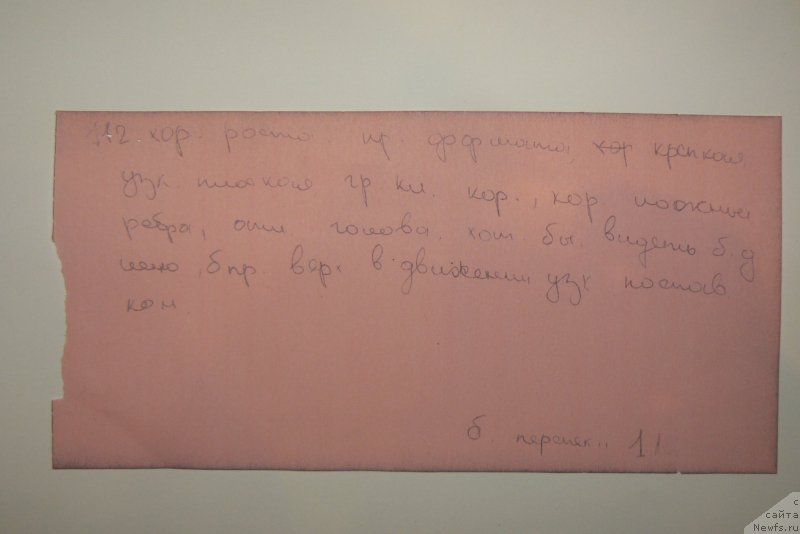 12. хор. роста пр. формата, хор крепкая
узк. плоская гр. кл. кор., хор. ложные
ребра, отл. голова. хот. бы. видеть б. д
шею, б пр. верх в движении узк постав
кон
б. перспек.. 1
с
сайта
Newfs.ru